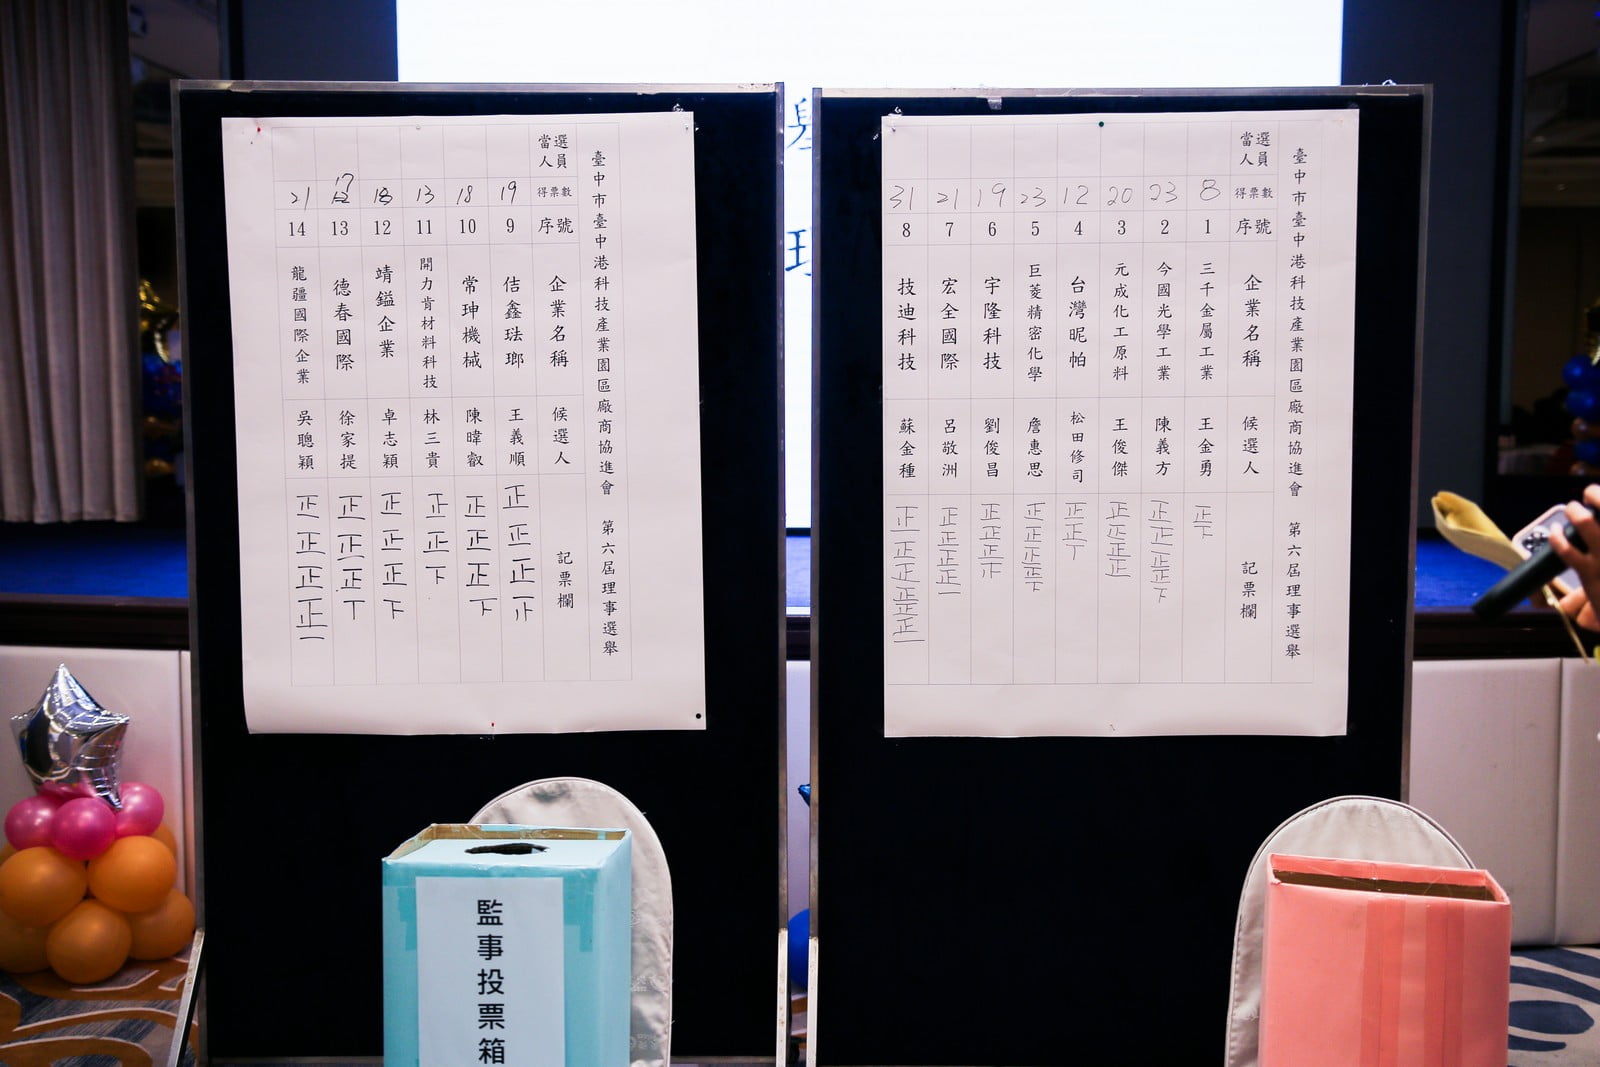 臺中市臺中港科技產業園區廠商協進會 第六屆理事選舉
當選人員 得票數 序號 企業名稱 候選人 記票欄
8 1 三千金屬工業 王金勇 正下
23 2 今國光學工業 陳義方 正正正正下
20 3 元成化工原料 王俊傑 正正正正
12 4 台灣昵帕 松田修司 正正丅
23 5 巨菱精密化學 詹惠思 正正正正下
19 6 宇隆科技 劉俊昌 正正正
21 7 宏全國際 呂敬洲 正正正正一
31 8 技迪科技 蘇金種 正正正正正正一
臺中市臺中港科技產業園區廠商協進會 第六屆理事選舉
當選人員 得票數 序號 企業名稱 候選人 記票欄
19 9 佶鑫琺瑯 王義順 正正正
18 10 常珅機械 陳暐叡 正正正下
13 11 開力肯材料科技 林三貴 正正下
18 12 靖鎰企業 卓志穎 正正正下
17 13 德春國際 徐家提 正正正丅
21 14 龍疆國際企業 吳聰穎 正正正正一
監事投票箱